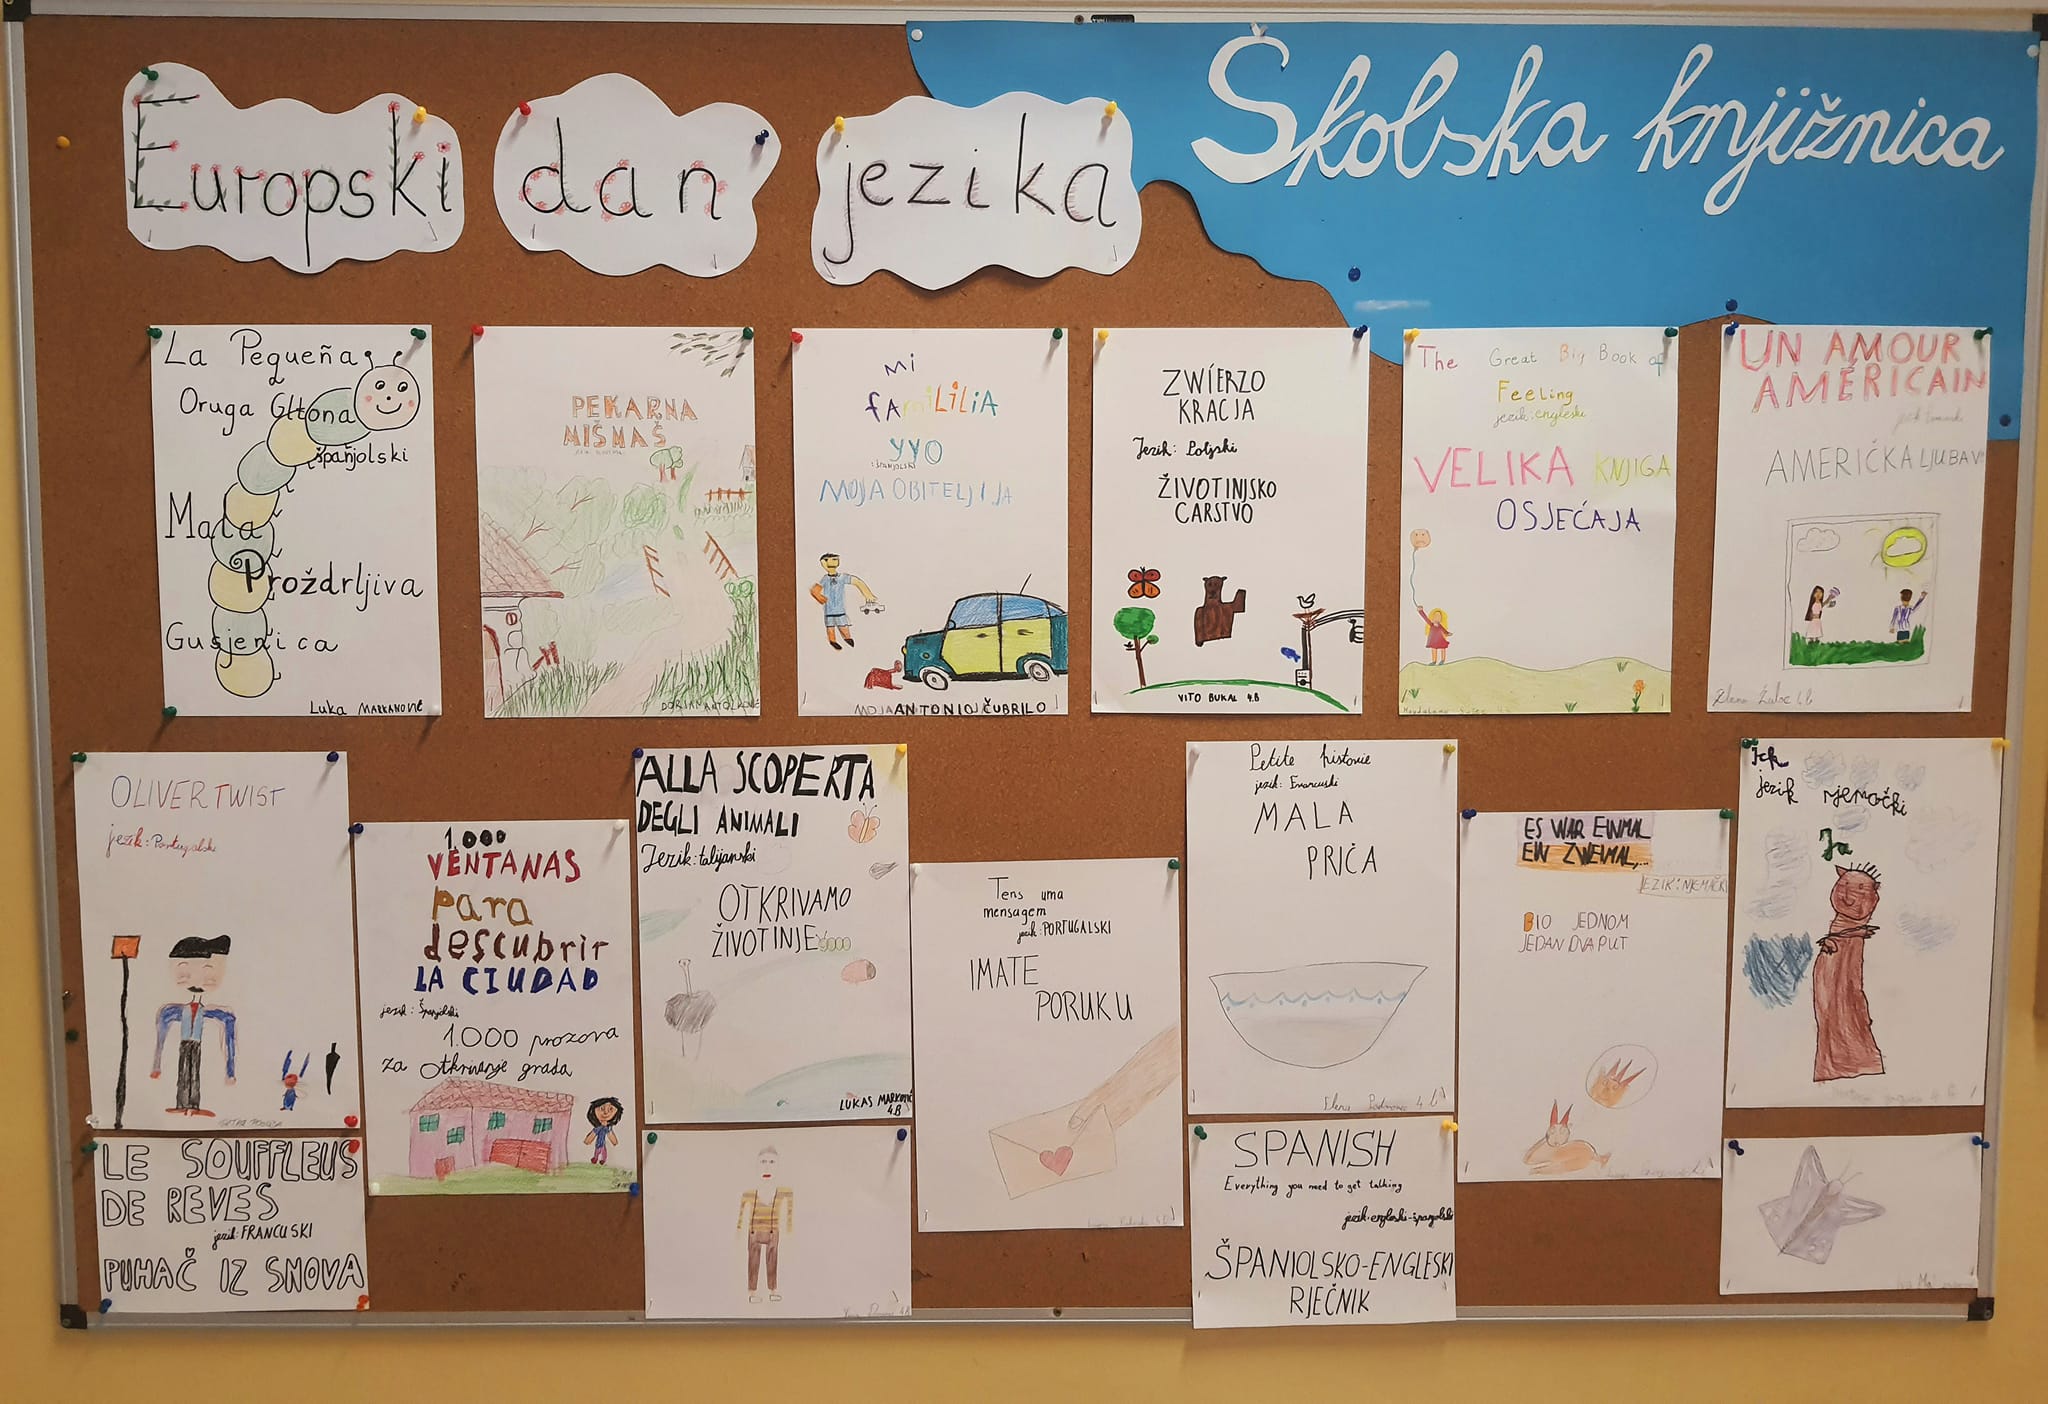 Europski dan jezika
Školska knjižnica
La Pequeña
Oruga Gltona
španjolski
Mala
Proždrljiva
Gusjenica
Luka MARKANOVIĆ
PEKARNA
MIŠMAŠ
Mi
fAmiLiLiA
yYO
španjolski
MOJA OBITELJ I JA
MOJA ANTONIO ČUBRILO
ZWÍERZO
KRACJA
Jezik: Poljski
ŽIVOTINJSKO
CARSTVO
VITO BUKAL 4.B
The Great Big Book of
Feeling
jezik: engleski
VELIKA KNJIGA
OSJEĆAJA
UN AMOUR
AMERICAIN
AMERIČKA LJUBAV
OLIVER TWIST
jezik: Portugalski
1.000
VENTANAS
para
descubrir
LA CIUDAD
jezik: Španjolski
1.000 prozora
za otkrivanje grada
ALLA SCOPERTA
DEGLI ANIMALI
Jezik: talijanski
OTKRIVAMO
ŽIVOTINJE
LUKAS MARKOVIĆ
4.B
Tens uma
mensagem
jezik: PORTUGALSKI
IMATE
PORUKU
Petite histoire
jezik: Francuski
MALA
PRIČA
Elena 4.b
ES WAR EINMAL
EIN ZWEIMAL,...
JEZIK: NJEMAČKI
BIO JEDNOM
JEDAN DVAPUT
Ick
jezik njemački
Ja
LE SOUFFLEUS
DE REVES
jezik: FRANCUSKI
PUHAČ IZ SNOVA
SPANISH
Everything you need to get talking
jezik: engleski-španjolski
ŠPANIOLSKO-ENGLESKI
RJEČNIK